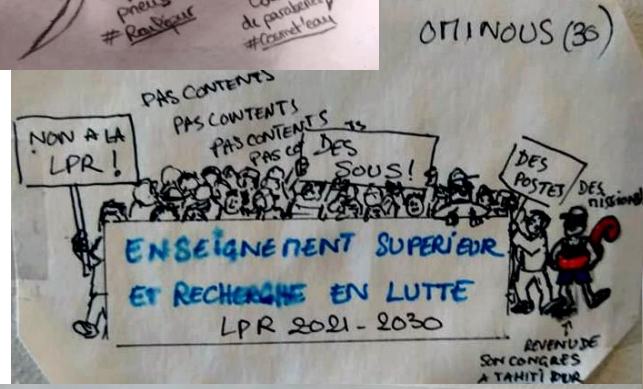 pneus
#RoulépuR
de parabenes
#Cosmet'eau
OMINOUS (30)
PAS CONTENTS
PAS CONTENTS
PAS CONTENTS
PAS CO
TS
NON A LA
LPR !
DES
SOUS !
DES
POSTES
DES
missions
ENSEIGNEMENT SUPERIEUR
ET RECHERCHE EN LUTTE
LPR 2021-2030
REVENU DE
SON CONGRES
A TAHITI DUR